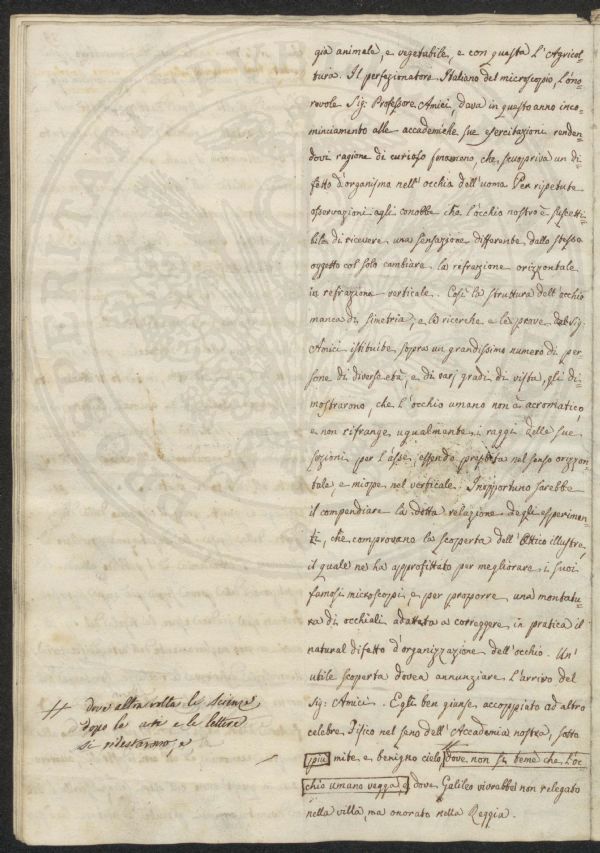 gia animale, e vegetabile, e con questa l'Agricol-
tura. Il perfezionatore Italiano del microscopio, l'ono-
revole Sig. Professore Amici, dava in questo anno inco-
minciamento alle accademiche sue esercitazioni renden-
dovi ragione di curioso fenomeno, che scuopriva un di-
fetto d'organismo nell'occhio dell'uomo. Per ripetute
osservazioni egli conobbe che l'occhio nostro è suscetti-
bile di ricevere una sensazione differente dallo stesso
oggetto col solo cambiare la refrazione orizzontale
in refrazione verticale. Così la struttura dell'occhio
manca di simetria, e le ricerche e le prove del Sig.
Amici istituite sopra un grandissimo numero di per
sone di diversa età, e di varj gradi di vista, gli di-
mostrarono, che l'occhio umano non è acromatico,
e non rifrange ugualmente i raggi delle sue
sezioni per l'asse, essendo presbita nel senso orizzon-
tale, e miope nel verticale. Inopportuno sarebbe
il compendiare la dotta relazione degli esperimen-
ti, che comprovano la scoperta dell'Ottico illustre,
il quale ne ha approfittato per megliorare i suoi
famosi microscopi, e per proporre una montatu-
ra di occhiali adattata a correggere in pratica il
natural difetto d'organizzazione dell'occhio. Un'
utile scoperta dovea annunziare l'arrivo del
Sig. Amici. Egli ben giunse, accoppiato ad altro
celebre Fisico nel seno dell'Accademia nostra, sotto
più mite e benigno cielo, # dove non si teme che l'oc
chio umano vegga e dove Galileo vivrebbe non relegato
nella villa, ma onorato nella Reggia.
# dove altra volta le scienze
dopo le arti e le lettere
si ridestarono, e